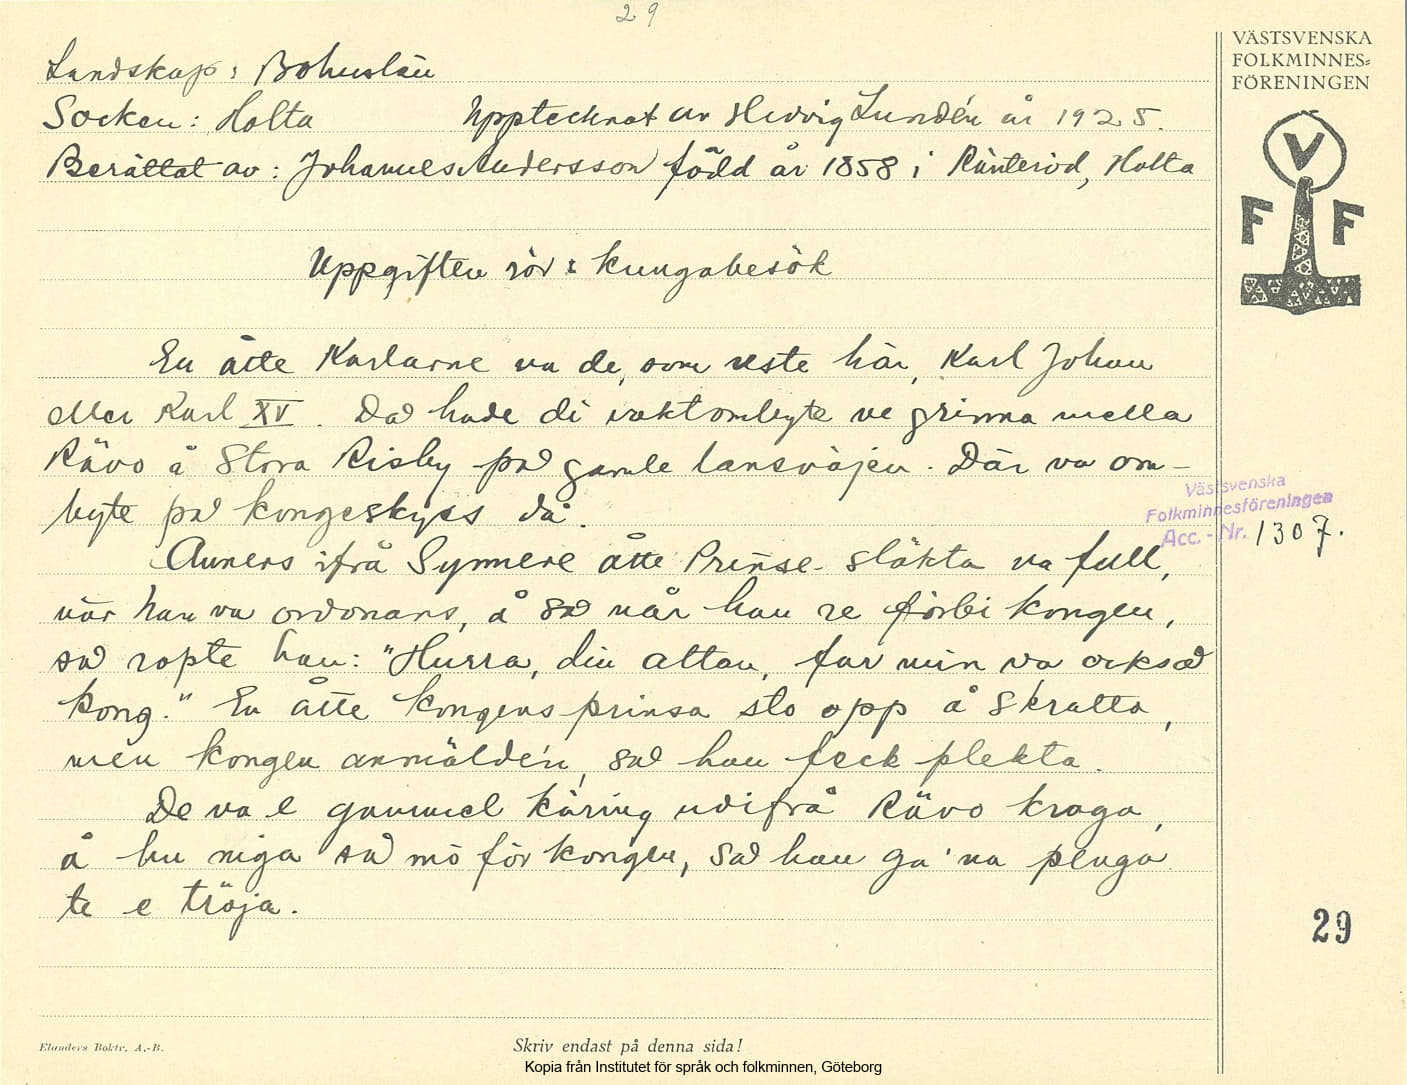 29
VÄSTSVENSKA
FOLKMINNES-
FÖRENINGEN
V
F F
Landskap: Bohuslän
Socken: Holta Upptecknat av Hedvig Lundén år 1925.
Berättat av: Johannes Andersson född år 1858 i Rünteröd, Holta
Uppgiften rör: kungabesök
En åtte Karlarne va de, som reste här, Karl Johan
eller Karl XV. Da hade di vaktombyte ve grinna mella
Rävo å Stora Risby pa gamle lansväjen. Där va om-
byte pa kongeskjss då.
Anners ifrå Synnere åtte Prinse-släkta va full,
när han va ordonans, å sa når han re förbi kongen,
sa ropte han: "Hurra, din attan, far min va också
kong." En åtte kongens prinsa sto opp å skratta,
men kongen anmälde'n, sa han feck plekta.
De va e gammel käring udifrå Rävo kraga,
å hu niga sa mö för kongen, sa han ga'na penga
te e tröja.
Västsvenska
Folkminnesföreningen
Acc.-Nr. 1307.
29
Elanders Boktr. A.-B.
Skriv endast på denna sida!
Kopia från Institutet för språk och folkminnen, Göteborg